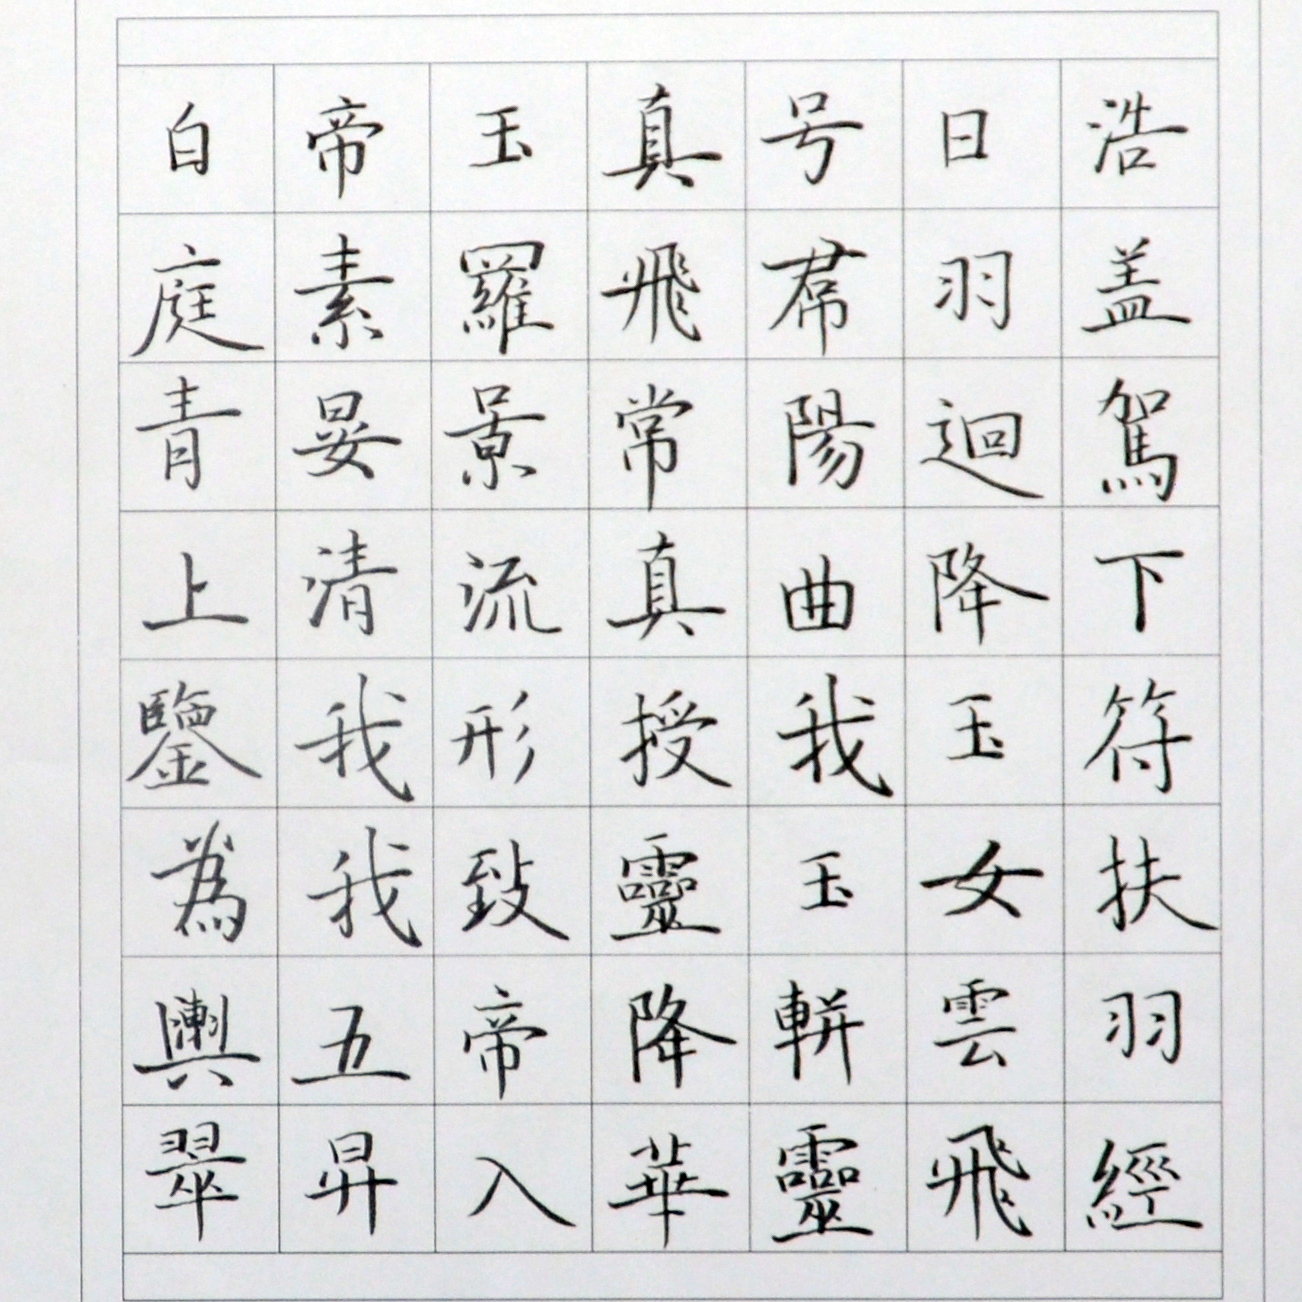 白帝玉真号曰浩
庭素羅飛帬羽盖
青晏景常陽迴駕
上清流真曲降下
鑒我形授我玉符
為我致靈玉女扶
輿五帝降軿雲羽
翠昇入華靈飛經